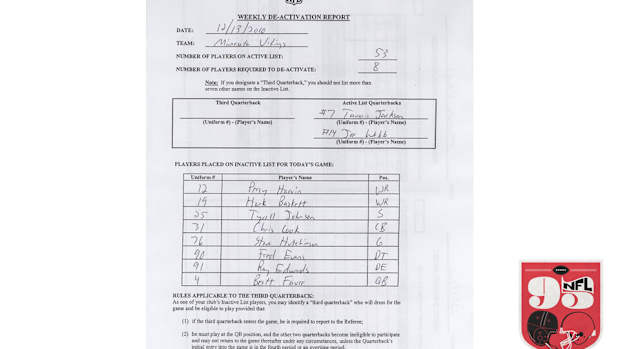 WEEKLY DE-ACTIVATION REPORT
DATE: 12/13/2010
TEAM: Minnesota Vikings
NUMBER OF PLAYERS ON ACTIVE LIST: 53
NUMBER OF PLAYERS REQUIRED TO DE-ACTIVATE: 8
Note: If you designate a "Third Quarterback," you should not list more than
seven other names on the Inactive List.
Third Quarterback Active List Quarterbacks
#7 Tarvaris Jackson
(Uniform #) - (Player's Name) (Uniform #) - (Player's Name)
#14 Joe Webb
(Uniform #) - (Player's Name)
PLAYERS PLACED ON INACTIVE LIST FOR TODAY'S GAME:
Uniform # Player's Name Pos.
12 Percy Harvin WR
19 Hank Baskett WR
25 Tyrell Johnson S
31 Chris Cook CB
76 Steve Hutchinson G
90 Fred Evans DT
91 Ray Edwards DE
4 Brett Favre QB
RULES APPLICABLE TO THE THIRD QUARTERBACK:
As one of your club's Inactive List players, you may identify a "third quarterback" who will dress for the
game and be eligible to play provided that:
(1) if the third quarterback enters the game, he is required to report to the Referee;
(2) he must play at the QB position, and the other two quarterbacks become ineligible to participate
and may not return to the game thereafter under any circumstances, unless the Quarterback's
initial entry into the game is in the fourth period or an overtime period.
NFL
95